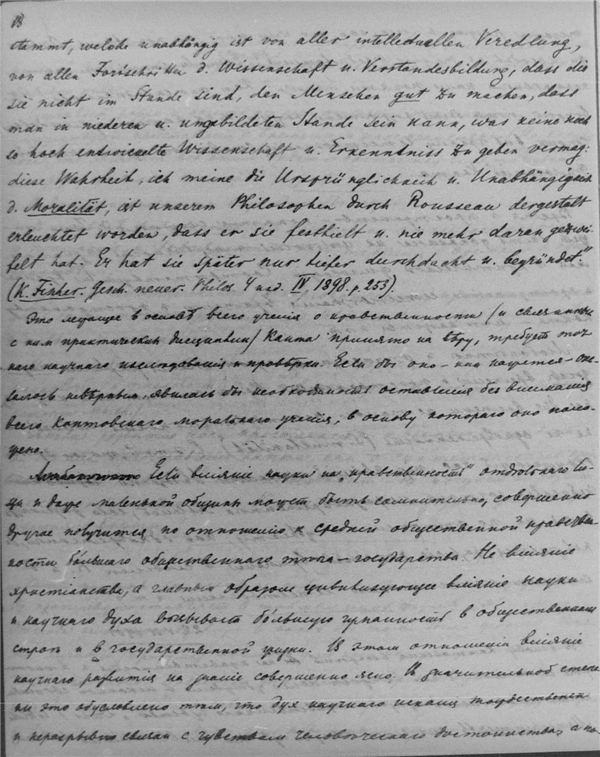 18
stammt, welche unabhängig ist von aller intellectuellen Veredlung,
von allen Fortschritten d. Wissenschaft u. Verstandesbildung, dass die
sie nicht im Stande sind, den Menschen gut zu machen, dass
man in niederen u. ungebildeten Stande sein kann, was keine noch
so hoch entwickelte Wissenschaft u. Erkenntniss zu geben vermag:
diese Wahrheit, ich meine die Ursprünglichkeit u. Unabhängigkeit
d. Moralität, ist unserem Philosophen durch Rousseau dergestalt
erleuchtet worden, dass er sie festhielt u. nie mehr daran gezwei-
felt hat. Er hat sie später nur tiefer durchdacht u. begründet"
(K. Fischer. Gesch. neuer. Philos. IV 1898. p. 253).
Это лежащее в основѣ всего учения о нравственности (и связанных
с ним практических дисциплин) Канта принято на вѣру, требует точ-
ного научного изслѣдования и провѣрки. Если бы оно - как кажется - ока-
залось невѣрным, явилась бы необходимость оставления без внимания
всего Кантовского морального учения, в основу которого оно поло-
жено.
Если влияние науки на "нравственность" отдѣльного ли-
ца и даже маленькой общины может быть сомнительно, совершенно
другое получится по отношению к средней общественной нравствен-
ности большого общественного тѣла - государства. Не влияние
христианства, а главным образом цивилизующее влияние науки
и научного духа вызывает большую гуманность в общественном
строѣ и в государственной жизни. В этом отношении влияние
научного развития на знание совершенно ясно. В значительной степе-
ни это обусловлено тѣм, что дух научного искания тождественен
и неразрывно связан с чувством человѣческого достоинства, а по-